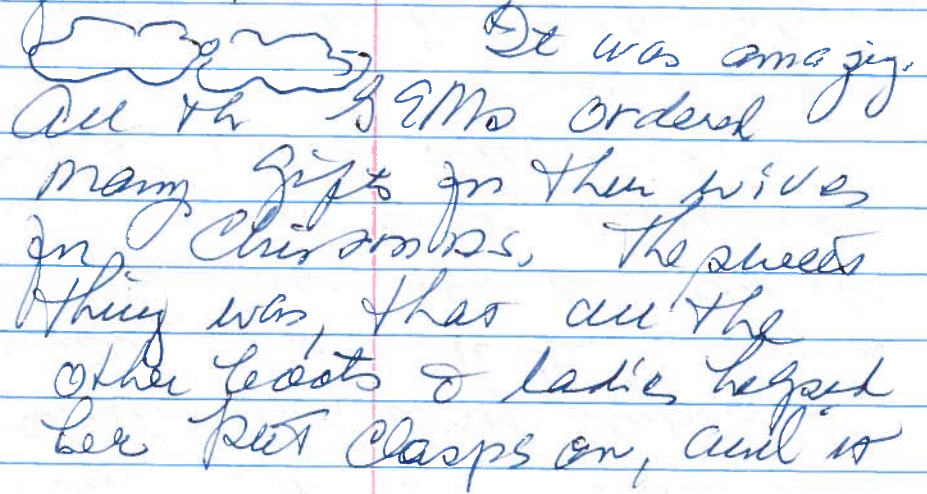 It was amazing.
All the GEMs ordered
many gifts for their wives
for Chrisomas, The sweets
thing was, that all the
other boats & ladies helped
her put clasps on, and it